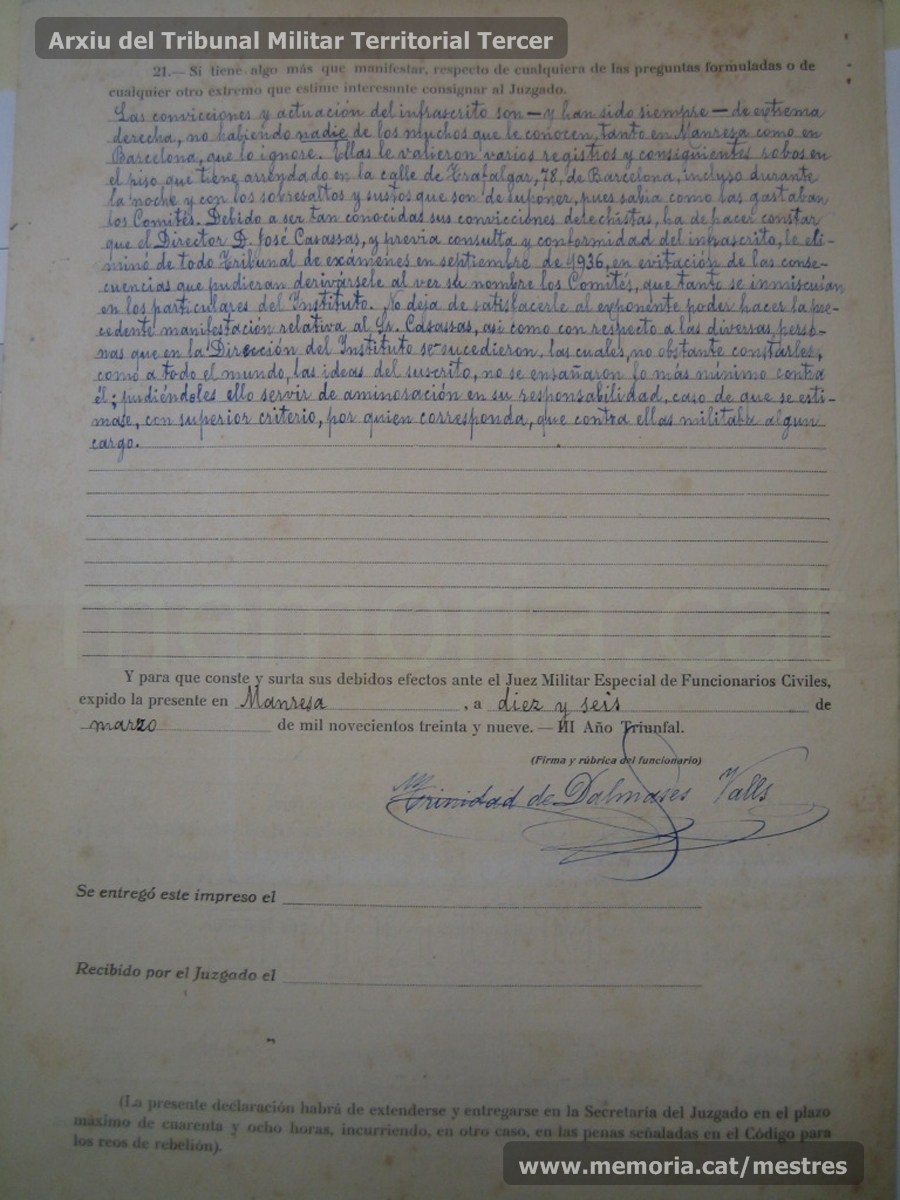 Arxiu del Tribunal Militar Territorial Tercer
21.— Si tiene algo más que manifestar, respecto de cualquiera de las preguntas formuladas o de
cualquier otro extremo que estime interesante consignar al Juzgado.
Las convicciones y actuación del infrascrito son — y han sido siempre — de extrema
derecha, no habiendo nadie de los muchos que le conocen, tanto en Manresa como en
Barcelona, que lo ignore. Ellas le valieron varios registros y consiguientes robos en
el piso que tiene arrendado en la calle de Trafalgar, 78, de Barcelona, incluso durante
la noche y con los sobresaltos y sustos que son de suponer, pues sabía como las gastaban
los Comités. Debido a ser tan conocidas sus convicciones derechistas, ha de hacer constar
que el Director D. José Casassas, y previa consulta y conformidad del infrascrito, le eli-
minó de todo Tribunal de exámenes en septiembre de 1936, en evitación de las conse-
cuencias que pudieran derivársele al ver su nombre los Comités, que tanto se inmiscuían
en los particulares del Instituto. No deja de satisfacerle al exponente poder hacer la pre-
cedente manifestación relativa al Sr. Casassas, así como con respecto a las diversas perso-
nas que en la Dirección del Instituto se sucedieron, las cuales, no obstante constarles,
como a todo el mundo, las ideas del suscrito, no se ensañaron lo más mínimo contra
él; pudiéndoles ello servir de aminoración en su responsabilidad, caso de que se esti-
mase, con superior criterio, por quien corresponda, que contra ellas militaba algun
cargo.
memoria.cat
Y para que conste y surta sus debidos efectos ante el Juez Militar Especial de Funcionarios Civiles,
expido la presente en Manresa, a diez y seis de
marzo de mil novecientos treinta y nueve. — III Año Triunfal.
(Firma y rúbrica del funcionario)
Trinidad de Dalmases Valls
Se entregó este impreso el
Recibido por el Juzgado el
(La presente declaración habrá de extenderse y entregarse en la Secretaría del Juzgado en el plazo
máximo de cuarenta y ocho horas, incurriendo, en otro caso, en las penas señaladas en el Código para
los reos de rebelión).
www.memoria.cat/mestres